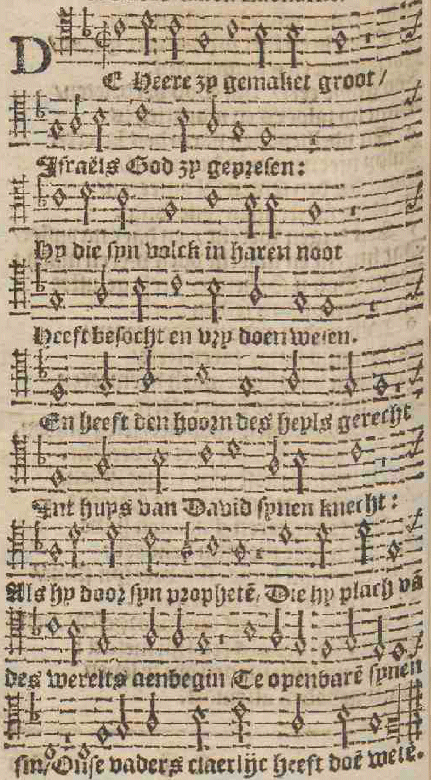 DE Heere zy gemaket groot /
Israëls God zy gepresen:
Hy die syn volck in haren noot
Heeft besocht en vry doen wesen.
En heeft den hoorn des heyls gerecht
Int huys van David synen knecht:
Als hy door syn prophetē, Die hy plach vā
des werelts aenbegin Te openbarē synen
sin / Onse vaders claerlijc heeft doē wetē.